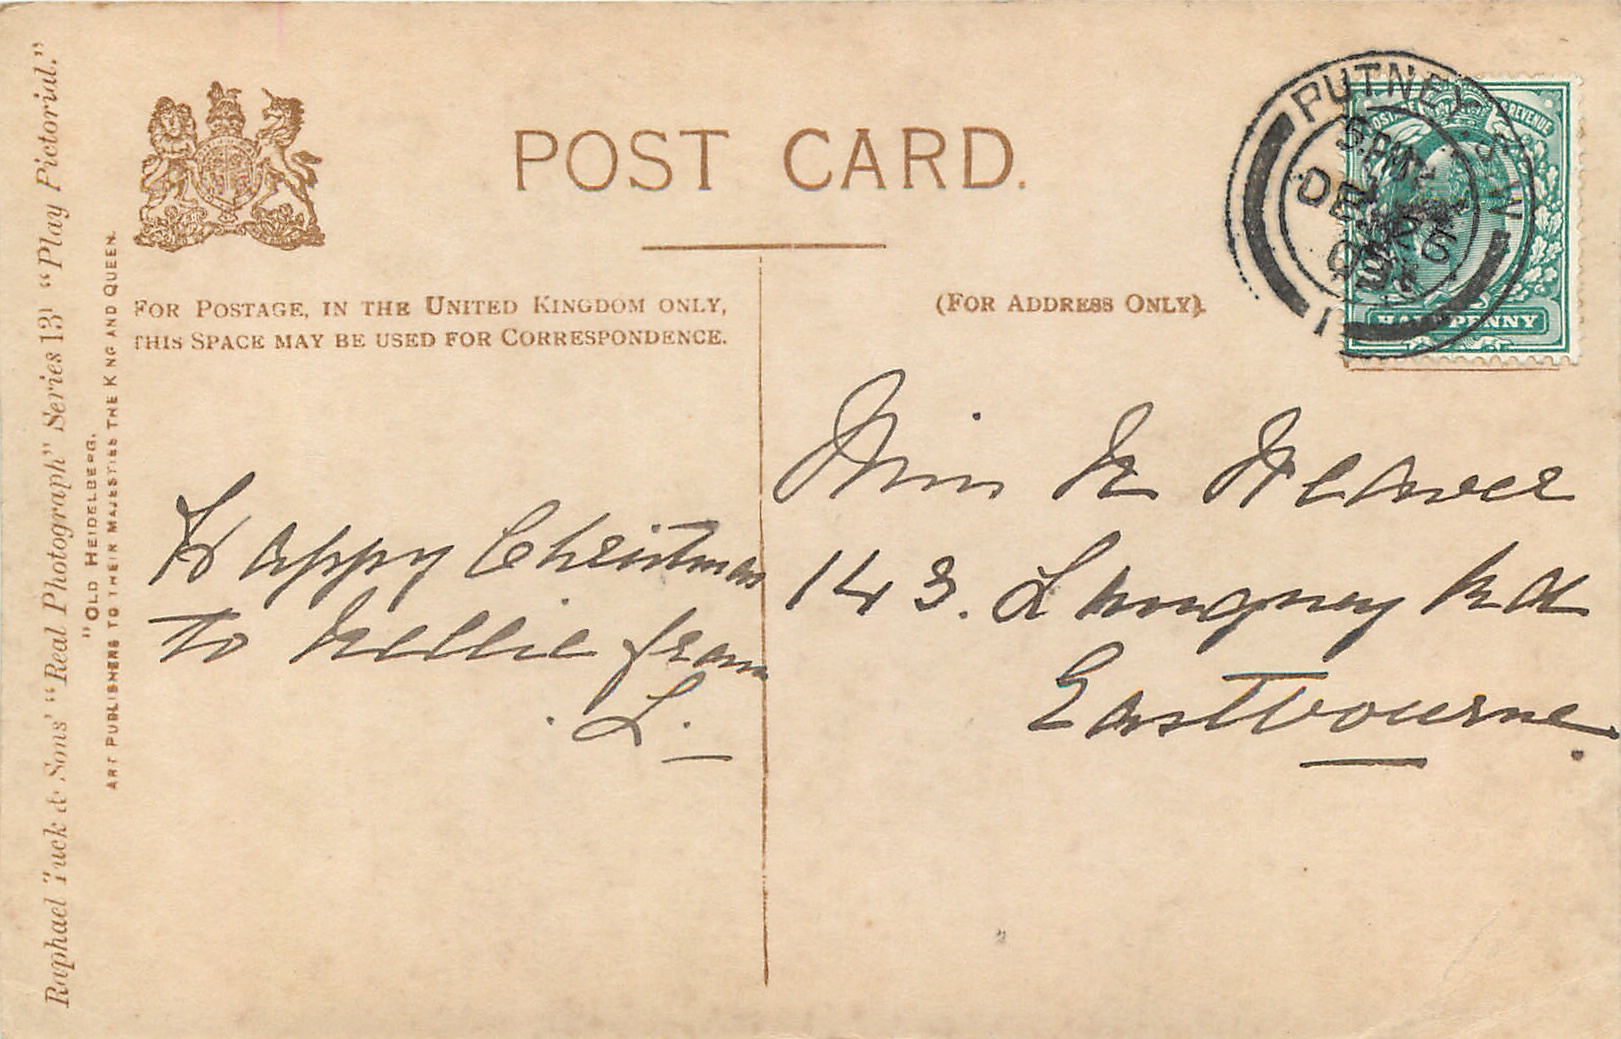 Raphael Tuck & Sons' "Real Photograph" Series 131 "Play Pictorial."
"OLD HEIDELBERG.
ART PUBLISHERS TO THEIR MAJESTIES THE KING AND QUEEN.
POST CARD.
FOR POSTAGE, IN THE UNITED KINGDOM ONLY,
THIS SPACE MAY BE USED FOR CORRESPONDENCE.
(FOR ADDRESS ONLY).
PUTNEY S.W
DE
HALFPENNY
Happy Christmas
to Nellie from
L.
Miss N Weaver
143. Langney Rd
Eastbourne.